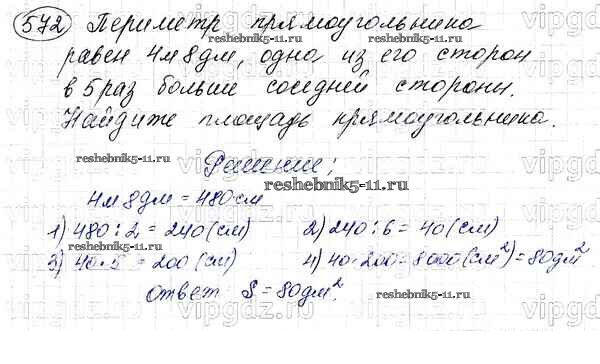 572 Периметр прямоугольника
равен 4м 8дм, одна из его сторон
в 5 раз больше соседней стороны.
Найдите площадь прямоугольника.
reshebnik5-11.ru
reshebnik5-11.ru
reshebnik5-11.ru
Решение:
reshebnik5-11.ru
4м 8дм = 480 см
1) 480 : 2 = 240 (см) 2) 240 : 6 = 40 (см)
reshebnik5-11.ru
3) 40 · 5 = 200 (см) 4) 40 · 200 = 8000 (см²) = 80 дм²
ответ: S = 80 дм².
reshebnik5-11.ru
vipgdz